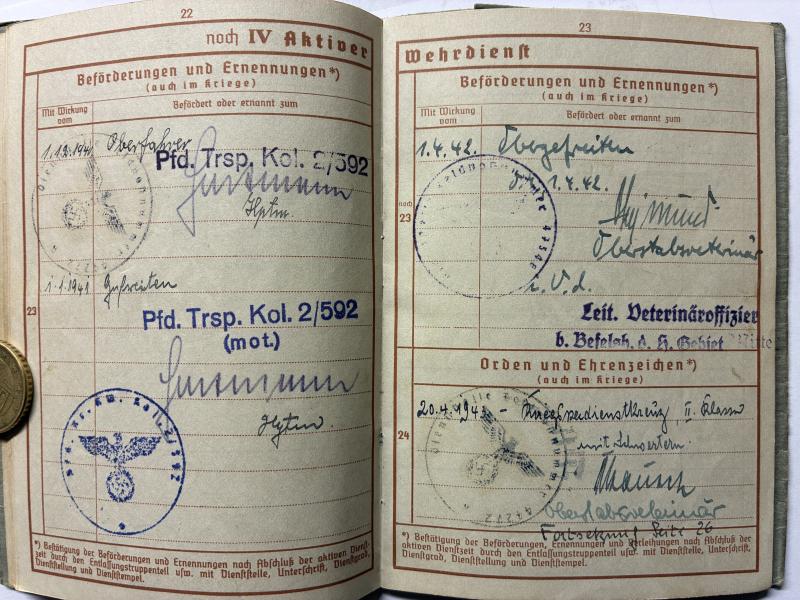 22
noch IV Aktiver
Beförderungen und Ernennungen*)
(auch im Kriege)
Mit Wirkung vom
Befördert oder ernannt zum
Oberfahrer
Pfd. Trsp. Kol. 2/592
Hptm.
23
1.1.1941 Gefreiten
Pfd. Trsp. Kol. 2/592
(mot.)
Hptm
*) Bestätigung der Beförderungen und Ernennungen nach Abschluß der aktiven Dienst-
zeit durch den Entlassungstruppenteil usw. mit Dienststelle, Unterschrift, Dienstgrad,
Dienststellung und Dienststempel.
23
Wehrdienst
Beförderungen und Ernennungen*)
(auch im Kriege)
Mit Wirkung vom
Befördert oder ernannt zum
1.4.42. Obergefreiten
1.4.42.
noch
23
Oberstabsveterinär
i.V.d.
Leit. Veterinäroffizier
b. Befelsh. d. H. Gebiet Mitte
Orden und Ehrenzeichen*)
(auch im Kriege)
Kriegsverdienstkreuz, II. Klasse
mit Schwertern.
24
Oberstabsveterinär
Fortsetzung Seite 26
*) Bestätigung der Beförderungen, Ernennungen und Verleihungen nach Abschluß der
aktiven Dienstzeit durch den Entlassungstruppenteil usw. mit Dienststelle, Unterschrift,
Dienstgrad, Dienststellung und Dienststempel.